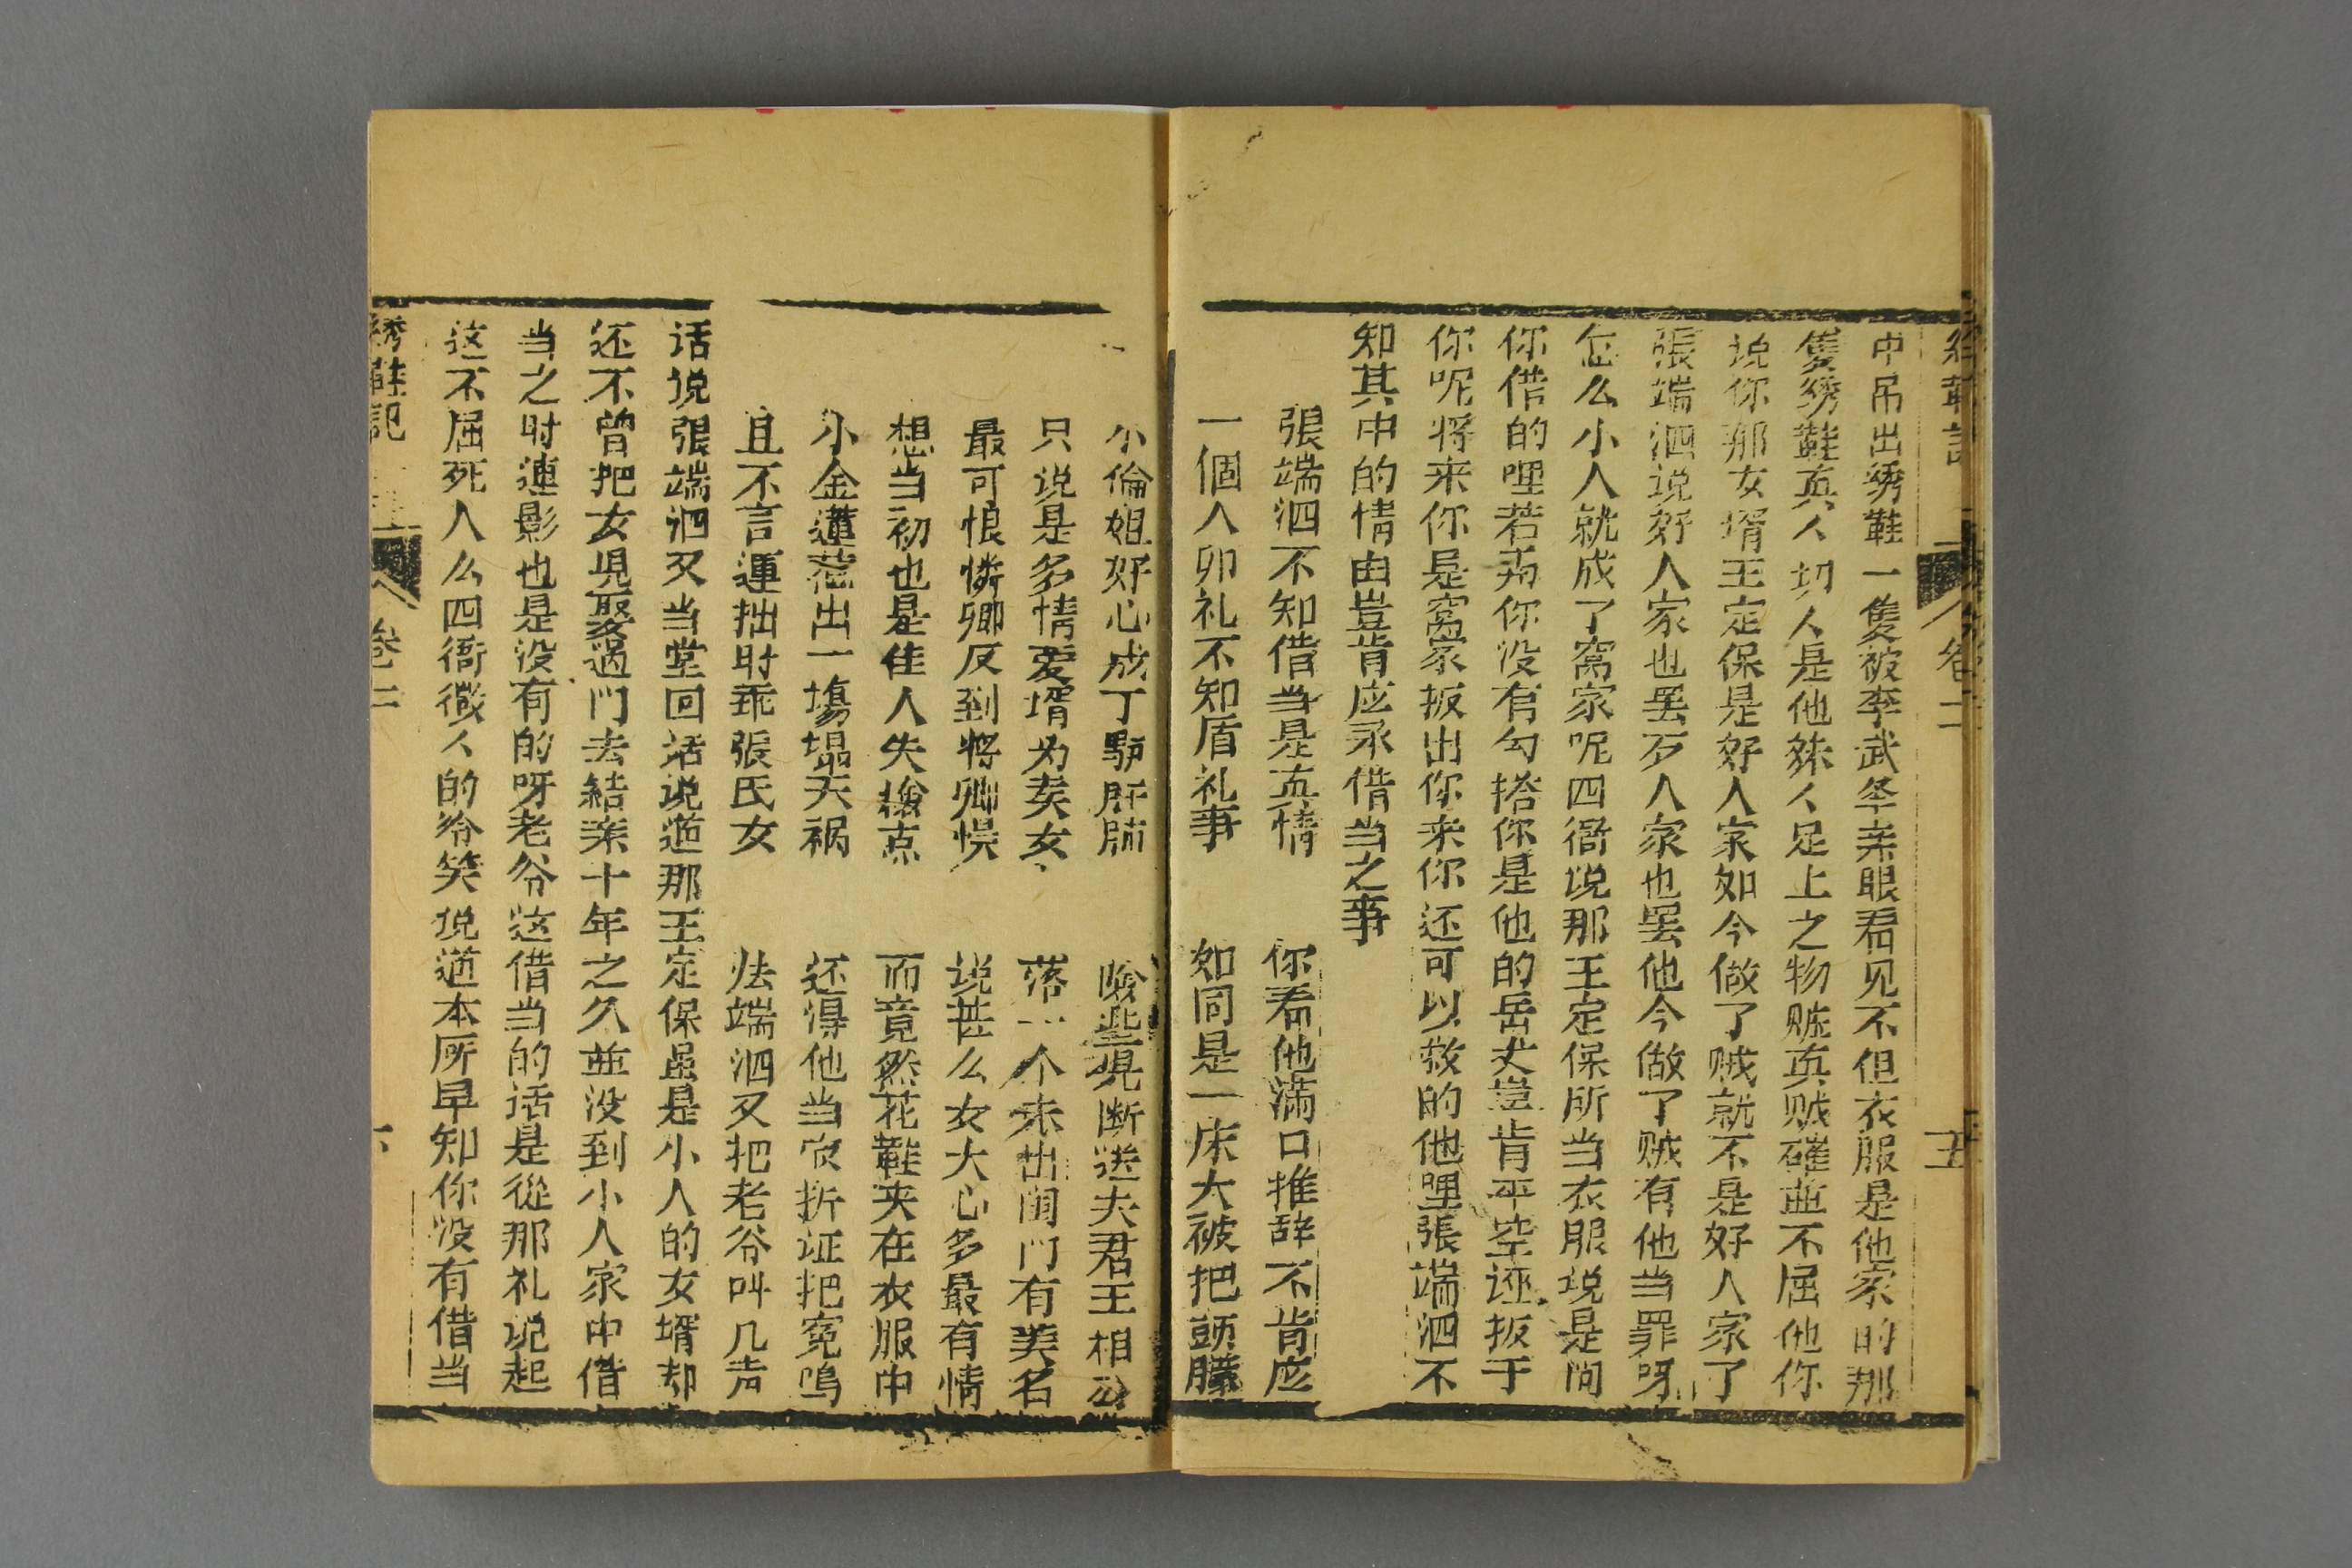 绣鞋記 卷二 五
中吊出绣鞋一隻被李武举亲眼看见不但衣服是他家的那
隻绣鞋真人切人是他殊人足上之物赃真贼確並不屈他你
说你那女壻王定保是好人家如今做了贼就不是好人家了
張端泗说好人家也罢歹人家也罢他今做了贼有他当罪呀
怎么小人就成了窩家呢四衙说那王定保所当衣服说是问
你借的哩若弄你没有勾搭你是他的岳丈豈肯平空诬扳于
你呢将来你是窩家扳出你来你还可以救的他哩張端泗不
知其中的情由豈肯应承借当之事
張端泗不知借当是真情 你看他满口推辞不肯应
一個人卯礼不知盾礼事 如同是一床大被把頭朦
小倫姐好心成了驴肝肺 險些児断送夫君王相公
只说是多情爱壻为卖女 落一个未出闺门有美名
最可恨憐卿反到将卿悮 说甚么女大心多最有情
想当初也是佳人失撿点 而竟然花鞋夹在衣服中
小金蓮惹出一塲塌天祸 还得他当官折证把冤鳴
且不言運拙时乖張氏女 怯端泗又把老爷叫几声
话说張端泗又当堂回话说道那王定保虽是小人的女壻却
还不曾把女児娶過门去結亲十年之久並没到小人家中借
当之时連影也是没有的呀老爷这借当的话是從那礼说起
这不屈死人么四衙微人的冷笑说道本所早知你没有借当
绣鞋記 卷二